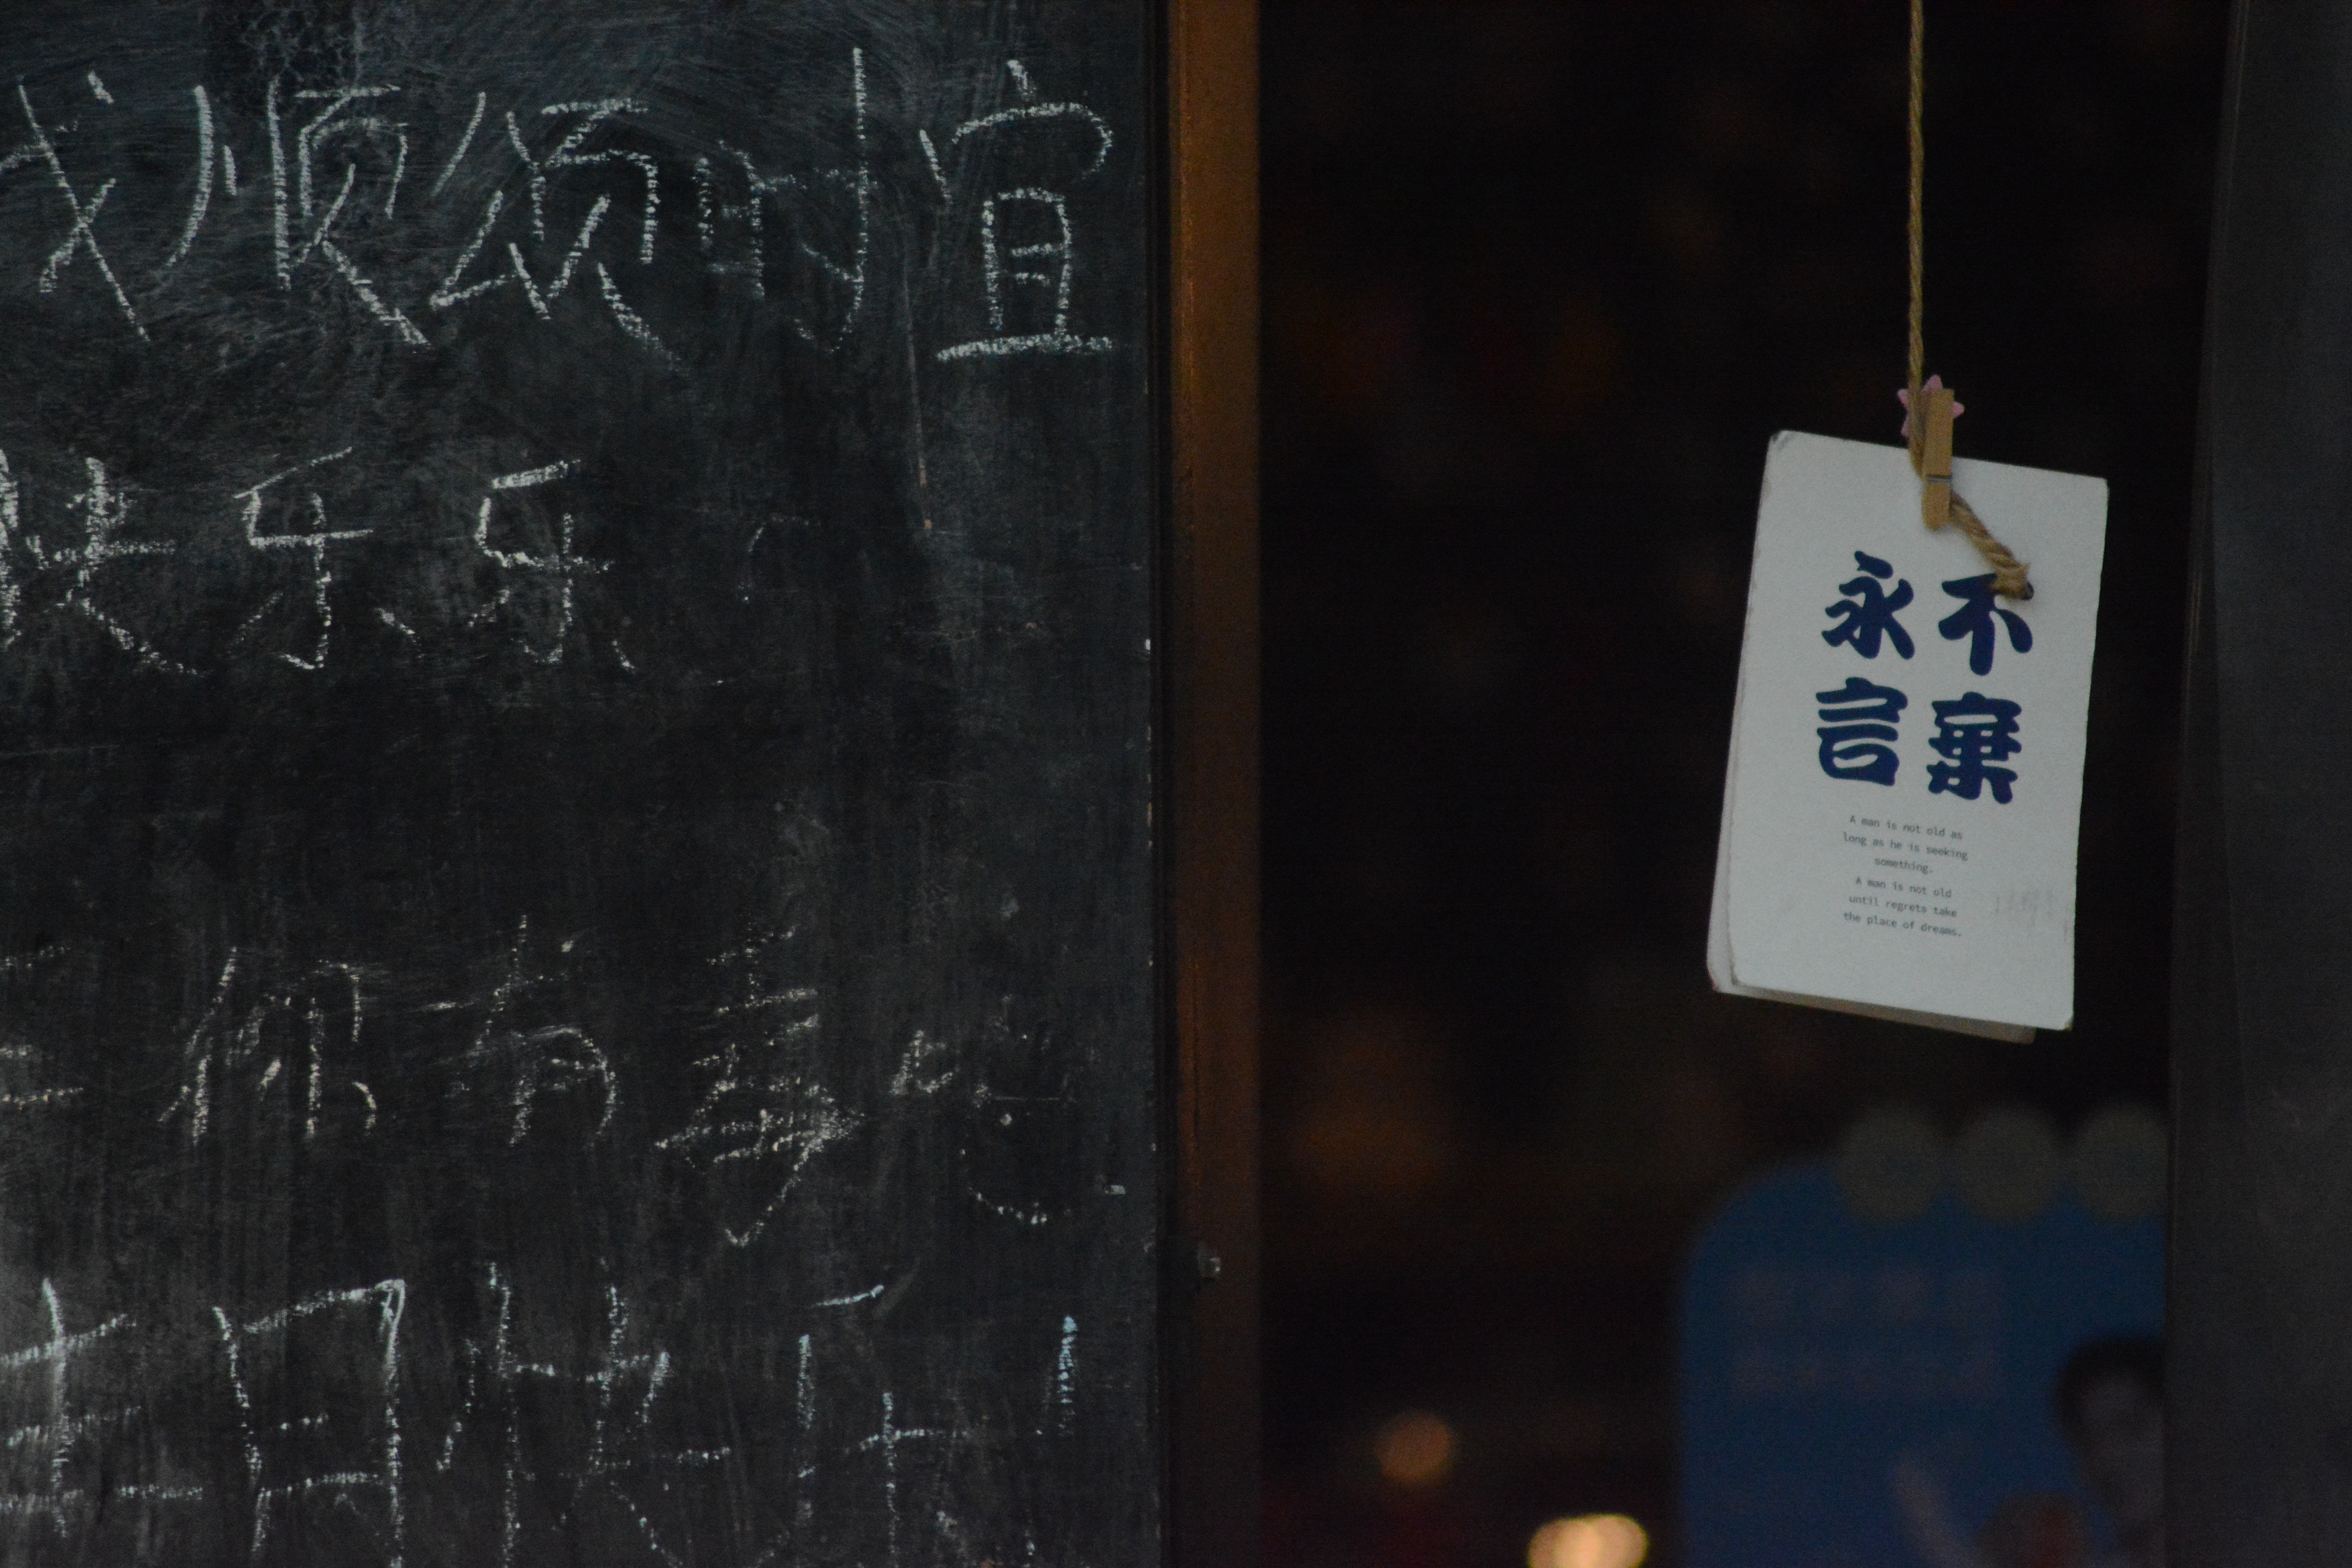 我顺颂时宜
快乐乐
你有毒
生日快乐!
永不
言棄
A man is not old as
long as he is seeking
something.
A man is not old
until regrets take
the place of dreams.